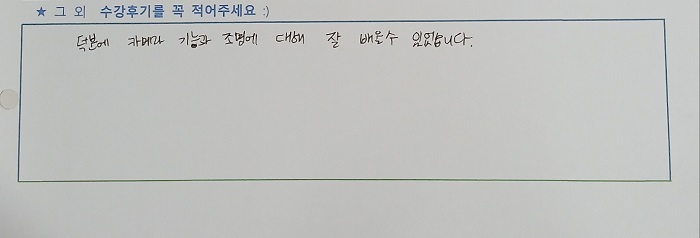 ★ 그 외 수강후기를 꼭 적어주세요 :)
덕분에 카메라 기능과 조명에 대해 잘 배울수 있었습니다.